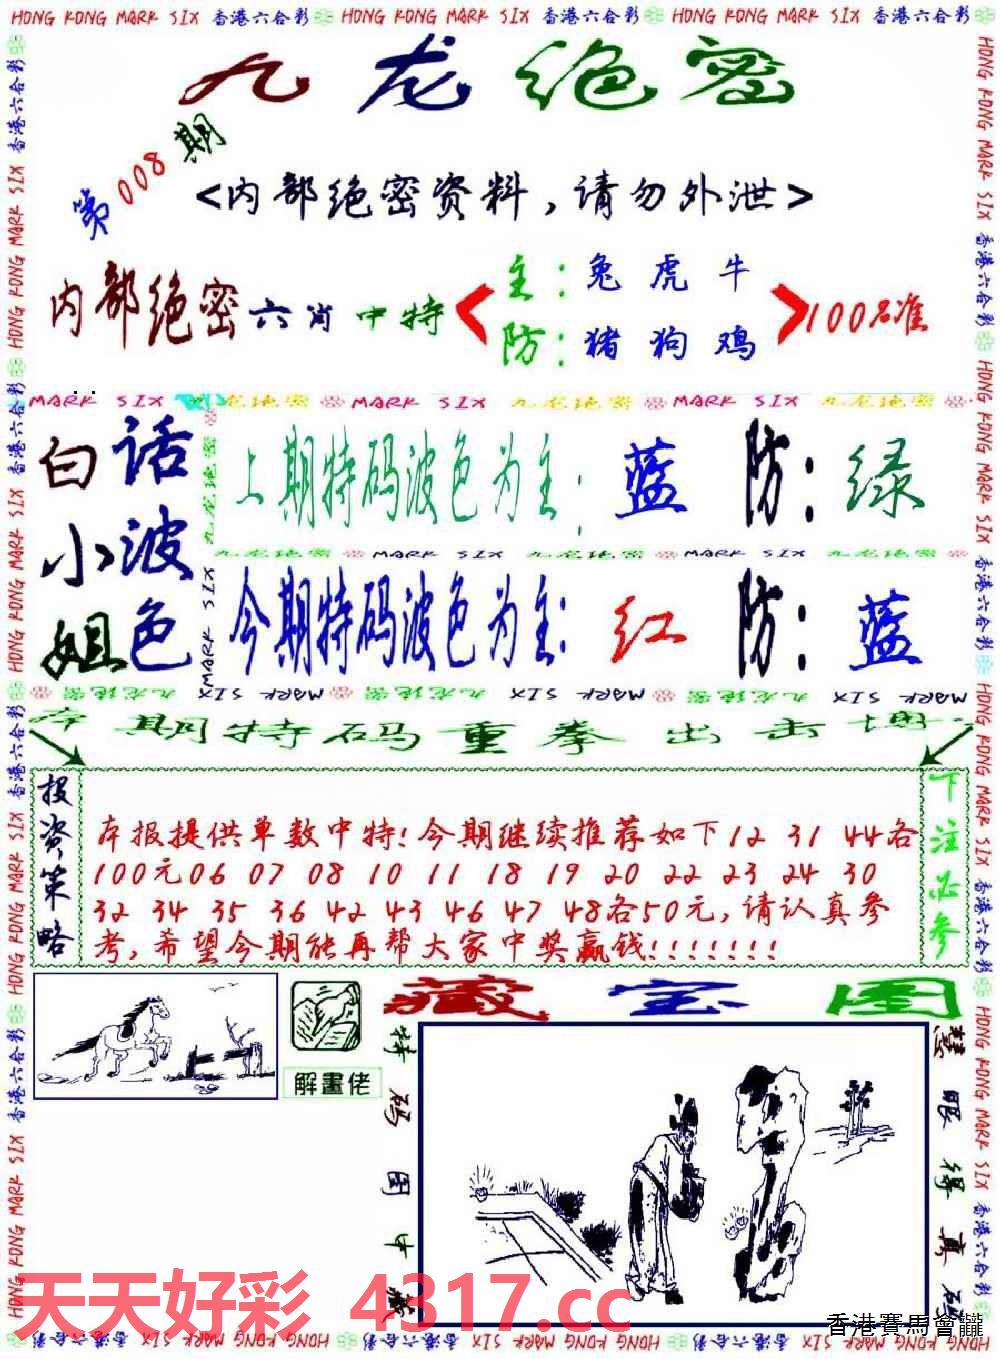 HONG KONG MARK SIX 香港六合彩 HONG KONG MARK SIX 香港六合彩 HONG KONG MARK SIX 香港六合彩
九龙绝密
第008期
<内部绝密资料，请勿外泄>
内部绝密六肖中特
主：兔虎牛
防：猪狗鸡
100%准
MARK SIX 九龙绝密 MARK SIX 九龙绝密 MARK SIX 九龙绝密
白话
小波
姐色
上期特码波色为主：蓝 防：绿
九龙绝密 MARK SIX 九龙绝密 MARK SIX 九龙绝密
今期特码波色为主：红 防：蓝
本期特码重拳出击
投资策略
本报提供单数中特!今期继续推荐如下12 31 44各
100元06 07 08 10 11 18 19 20 22 23 24 30
32 34 35 36 42 43 46 47 48各50元,请认真参
考,希望今期能再帮大家中奖赢钱!!!!!!!
下注必参
解畫佬
藏宝图
特码图中藏
慧眼得真码
天天好彩 4317.cc
香港賽馬會